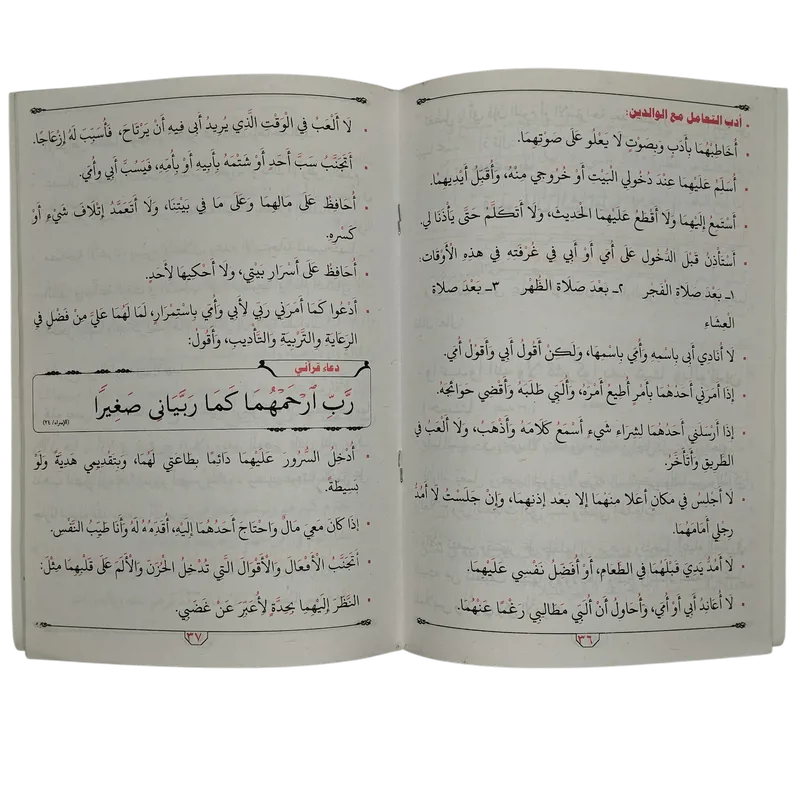 • أدب التعامل مع الوالدين:
• أُخَاطِبُهُمَا بِأَدَبٍ وَبِصَوْتٍ لَا يَعْلُو عَلَى صَوْتِهِمَا.
• أُسَلِّمُ عَلَيْهِمَا عِنْدَ دُخُولِي الْبَيْتَ أَوْ خُرُوجِي مِنْهُ، وَأُقَبِّلُ أَيْدِيهِمَا.
• أَسْتَمِعُ إِلَيْهِمَا وَلَا أَقْطَعُ عَلَيْهِمَا الْحَدِيثَ، وَلَا أَتَكَلَّمُ حَتَّى يَأْذَنَا لِي.
• أَسْتَأْذِنُ قَبْلَ الدُّخُولِ عَلَى أُمِّي أَوْ أَبِي فِي غُرْفَتِهِ فِي هَذِهِ الْأَوْقَاتِ:
١ـ بَعْدَ صَلَاةِ الْفَجْرِ ٢ـ بَعْدَ صَلَاةِ الظُّهْرِ ٣ـ بَعْدَ صَلَاةِ
الْعِشَاءِ
• لَا أُنَادِي أَبِى بِاسْمِهِ وَأُمِّي بِاسْمِهَا، وَلَكِنْ أَقُولُ أَبِي وَأَقُولُ أُمِّي.
• إِذَا أَمَرَنِي أَحَدُهُمَا بِأَمْرٍ أُطِيعُ أَمْرَهُ، وَأُلَبِّي طَلَبَهُ وَأَقْضِي حَوَائِجَهُ.
• إِذَا أَرْسَلَنِي أَحَدُهُمَا لِشِرَاءِ شَيْءٍ أَسْمَعُ كَلَامَهُ وَأَذْهَبُ، وَلَا أَلْعَبُ فِي
الطَّرِيقِ وَأَتَأَخَّرُ.
• لَا أَجْلِسُ فِي مَكَانٍ أَعْلَا مِنْهُمَا إِلَّا بَعْدَ إِذْنِهِمَا، وَإِنْ جَلَسْتُ لَا أَمُدُّ
رِجْلِي أَمَامَهُمَا.
• لَا أَمُدُّ يَدِي قَبْلَهُمَا فِي الطَّعَامِ، أَوْ أُفَضِّلُ نَفْسِي عَلَيْهِمَا.
• لَا أُعَانِدُ أَبِي أَوْ أُمِّي، وَأُحَاوِلُ أَنْ أُلَبِّيَ مَطَالِبِي رَغْمًا عَنْهُمَا.
٣٦
• لَا أَلْعَبُ فِي الْوَقْتِ الَّذِي يُرِيدُ أَبِى فِيهِ أَنْ يَرْتَاحَ، فَأُسَبِّبَ لَهُ إِزْعَاجًا.
• أَتَجَنَّبُ سَبَّ أَحَدٍ أَوْ شَتْمَهُ بِأَبِيهِ أَوْ بِأُمِّهِ، فَيَسُبَّ أَبِي وَأُمِّي.
• أُحَافِظُ عَلَى مَالِهِمَا وَعَلَى مَا فِي بَيْتِنَا، وَلَا أَتَعَمَّدُ إِتْلَافَ شَيْءٍ أَوْ
كَسْرِهِ.
• أُحَافِظُ عَلَى أَسْرَارِ بَيْتِي، وَلَا أَحْكِيهَا لِأَحَدٍ.
• أَدْعُوا كَمَا أَمَرَنِي رَبِّي لِأَبِي وَأُمِّي بِاسْتِمْرَارٍ، لِمَا لَهُمَا عَلَيَّ مِنْ فَضْلٍ فِي
الرِّعَايَةِ وَالتَّرْبِيَةِ وَالتَّأْدِيبِ، وَأَقُولُ:
دعاء قرآني
رَّبِّ ٱرْحَمْهُمَا كَمَا رَبَّيَانِى صَغِيرًا (الإسراء/٢٤)
• أُدْخِلُ السُّرُورَ عَلَيْهِمَا دَائِمًا بِطَاعَتِي لَهُمَا، وَبِتَقْدِيمِي هَدِيَّةً وَلَوْ
بَسِيطَةً.
• إِذَا كَانَ مَعِيَ مَالٌ وَاحْتَاجَ أَحَدُهُمَا إِلَيْهِ، أُقَدِّمُهُ لَهُ وَأَنَا طَيِّبُ النَّفْسِ.
• أَتَجَنَّبُ الْأَفْعَالَ وَالْأَقْوَالَ الَّتِي تُدْخِلُ الْحُزْنَ وَالْأَلَمَ عَلَى قَلْبِهِمَا مِثْلَ:
• النَّظَرَ إِلَيْهِمَا بِحِدَّةٍ لِأُعَبِّرَ عَنْ غَضَبِي.
٣٧